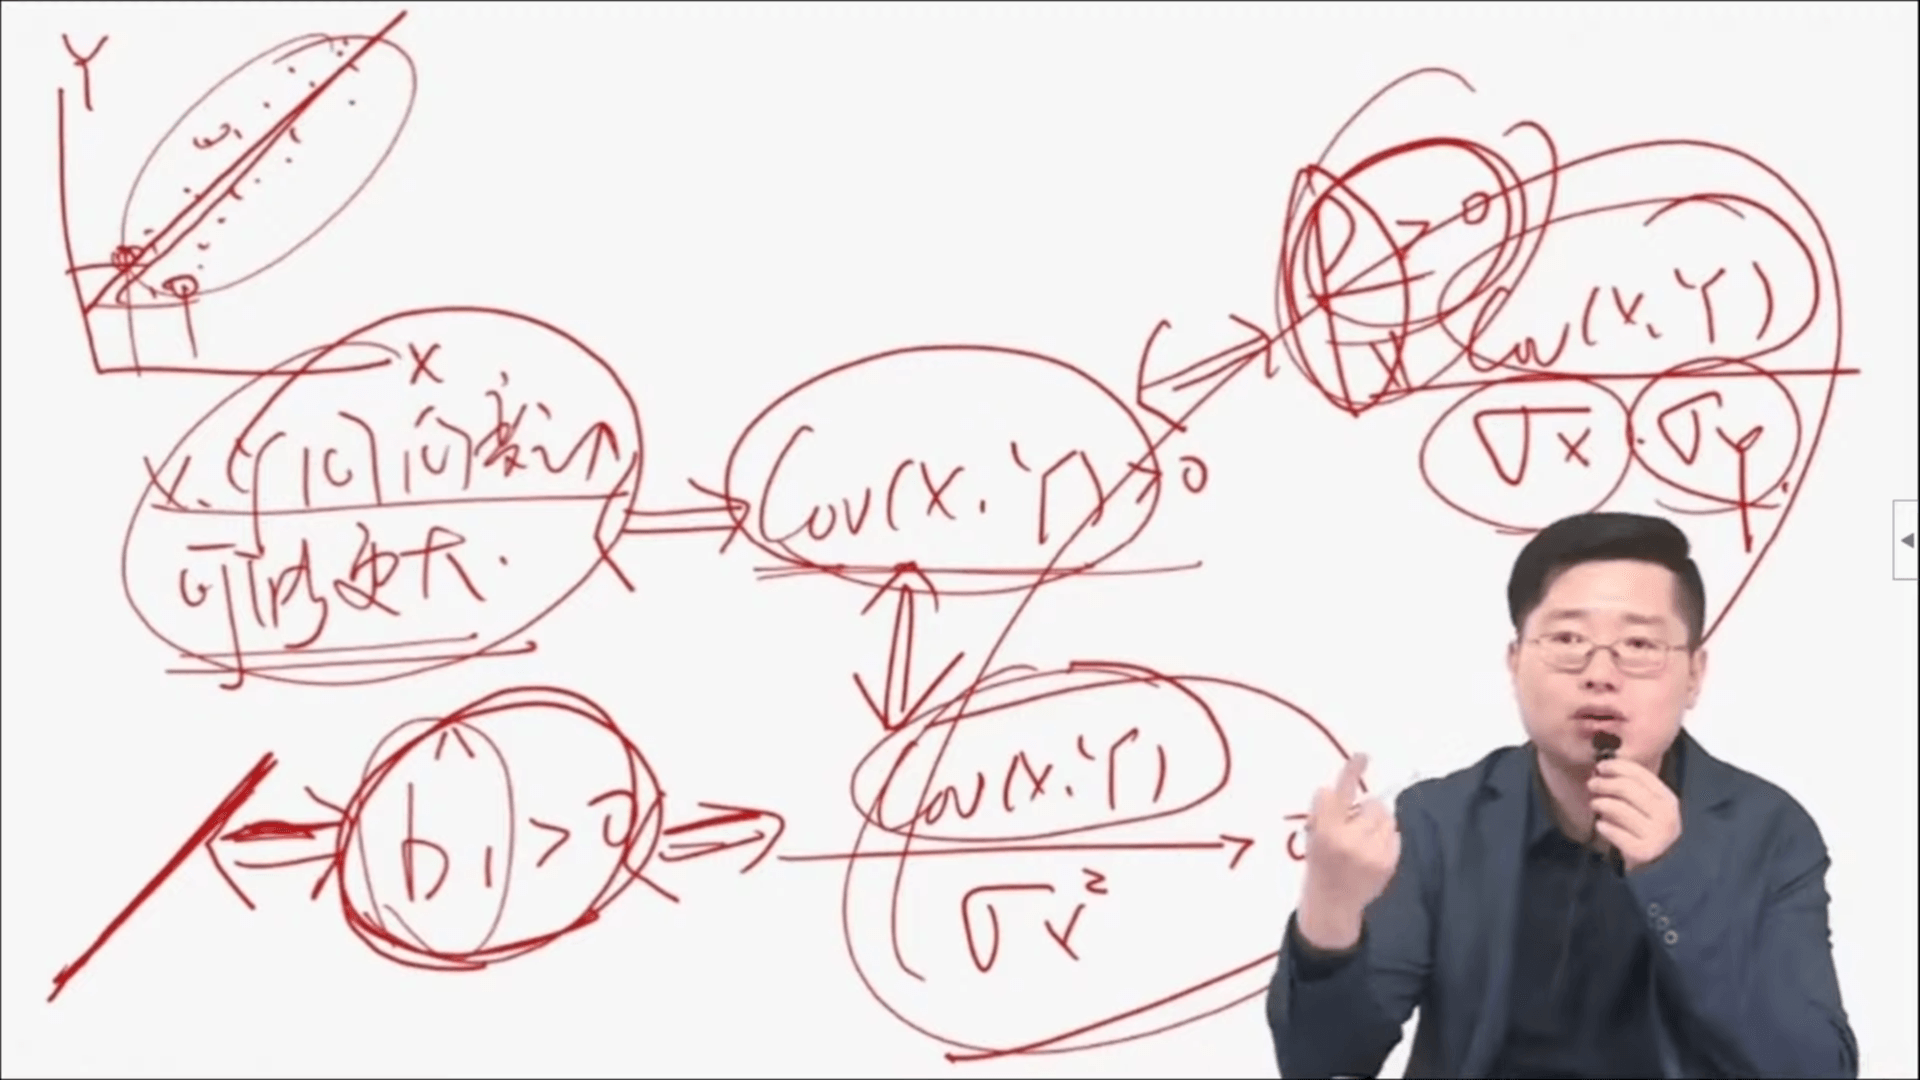 Y
X
X、Y同向变动
可能更大.
Cov(X,Y) > 0
ρ > 0
Cov(X,Y)
σx · σY
b̂1 > 0
Cov(X,Y) > 0
σx²